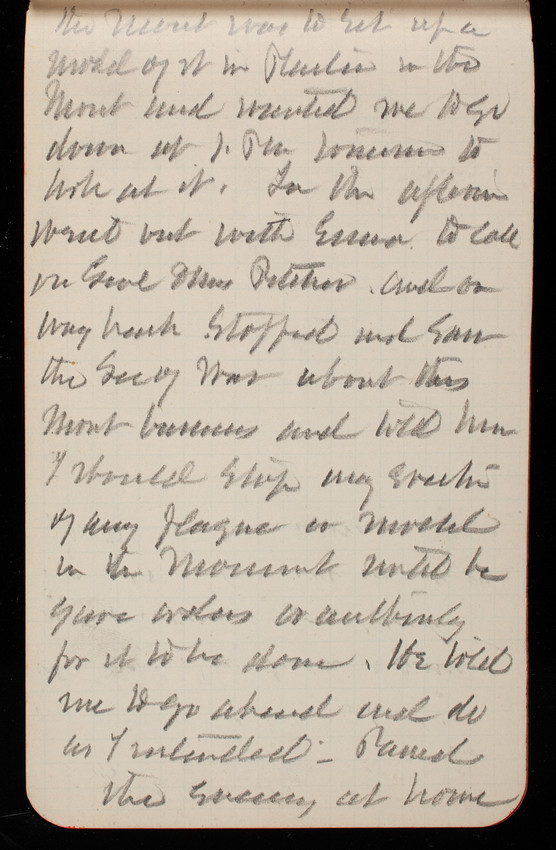 the Mont was to get up a
model of it in Plaster in the
Mont and wanted me to go
down at 1 P.M. tomorrow to
look at it. In the afternoon
went out with Emma to call
on Genl & Mrs and on
way back stopped and saw
the Secy War about this
Mont business and told him
I should stop any erection
of any plaque or model
in the Monument until he
gave orders or authority
for it to be done. He told
me to go ahead and do
as I intended - Passed
the evening at home